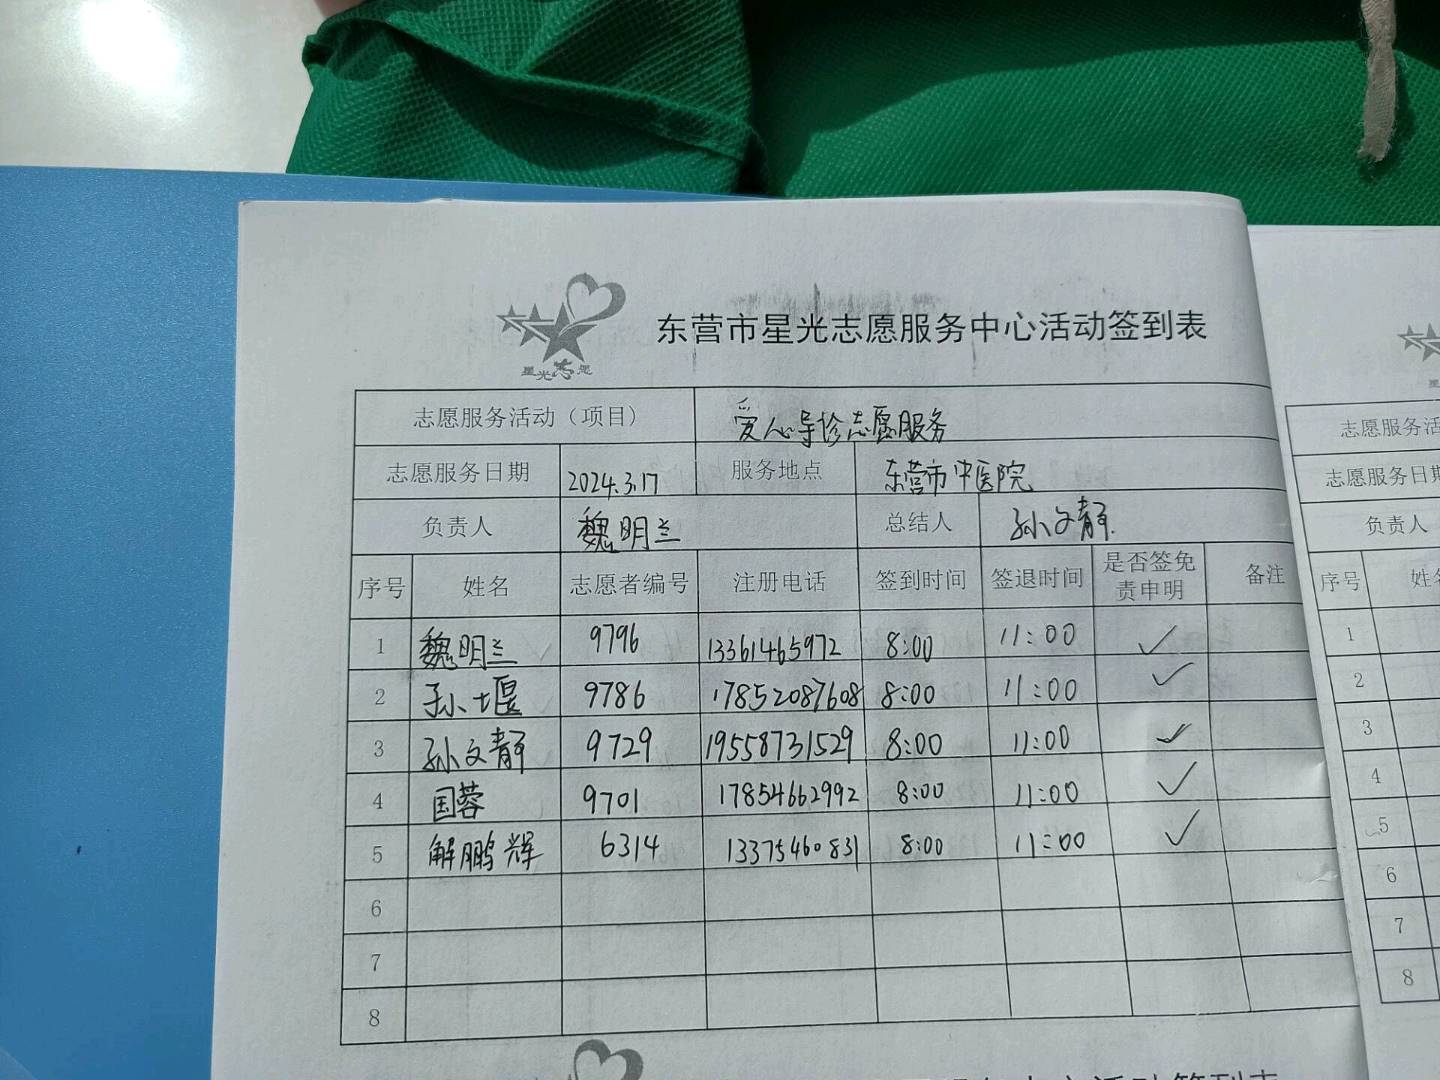 星光志愿
东营市星光志愿服务中心活动签到表
志愿服务活动（项目） 爱心导诊志愿服务
志愿服务日期 2024.3.17 服务地点 东营市中医院
负责人 魏明兰 总结人 孙文静
序号 姓名 志愿者编号 注册电话 签到时间 签退时间 是否签免责申明 备注
1 魏明兰 9796 13361465972 8:00 11:00 ✓
2 孙堰 9786 17852087608 8:00 11:00 ✓
3 孙文静 9729 19558731529 8:00 11:00 ✓
4 国蓉 9701 17854662992 8:00 11:00 ✓
5 解鹏辉 6314 13375460831 8:00 11:00 ✓
6
7
8
志愿服务活
志愿服务日期
负责人
序号 姓名
1
2
3
4
5
6
7
8